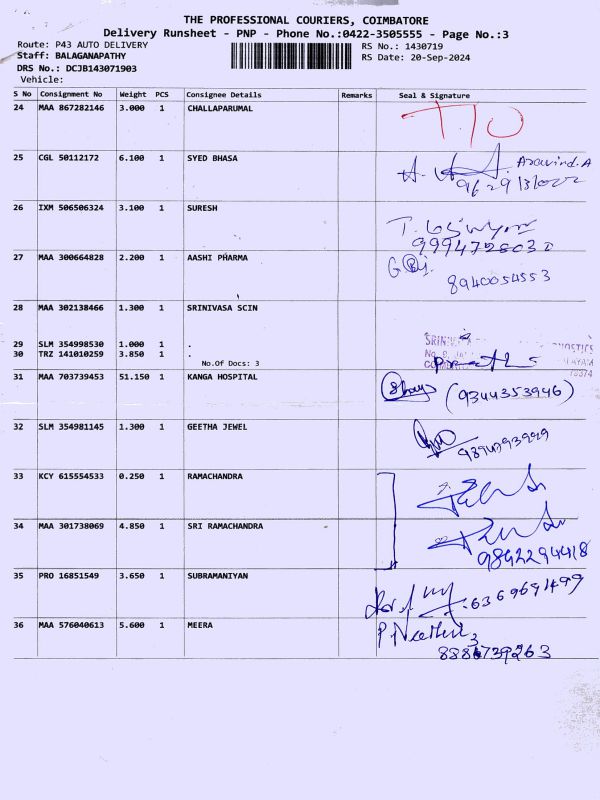 THE PROFESSIONAL COURIERS, COIMBATORE
Delivery Runsheet - PNP - Phone No.:0422-3505555 - Page No.:3
Route: P43 AUTO DELIVERY RS No.: 1430719
Staff: BALAGANAPATHY RS Date: 20-Sep-2024
DRS No.: DCJB143071903
Vehicle:
S No Consignment No Weight PCS Consignee Details Remarks Seal & Signature
24 MAA 867282146 3.000 1 CHALLAPARUMAL
25 CGL 50112172 6.100 1 SYED BHASA
Aravind.A
26 IXM 506506324 3.100 1 SURESH
27 MAA 300664828 2.200 1 AASHI PHARMA
8940054553
28 MAA 302138466 1.300 1 SRINIVASA SCIN
29 SLM 354998530 1.000 1 .
30 TRZ 141010259 3.850 1 .
No.Of Docs: 3
31 MAA 703739453 51.150 1 KANGA HOSPITAL
(9344353946)
32 SLM 354981145 1.300 1 GEETHA JEWEL
33 KCY 615554533 0.250 1 RAMACHANDRA
34 MAA 301738069 4.850 1 SRI RAMACHANDRA
9842294418
35 PRO 16851549 3.650 1 SUBRAMANIYAN
6369691499
36 MAA 576040613 5.600 1 MEERA